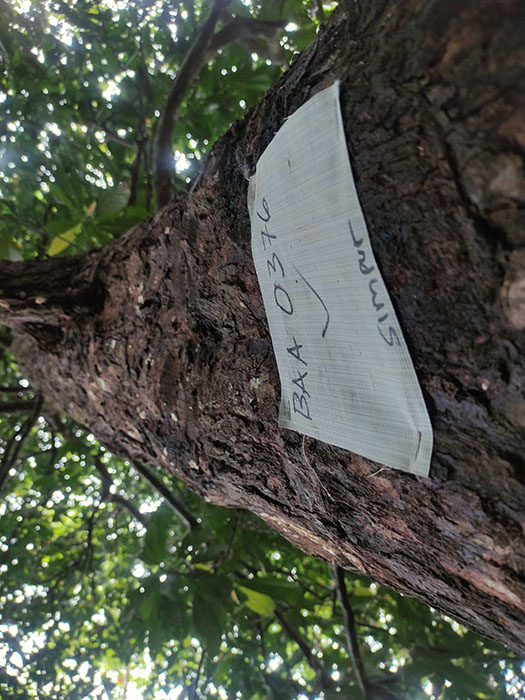 BAA 0376
Simpur